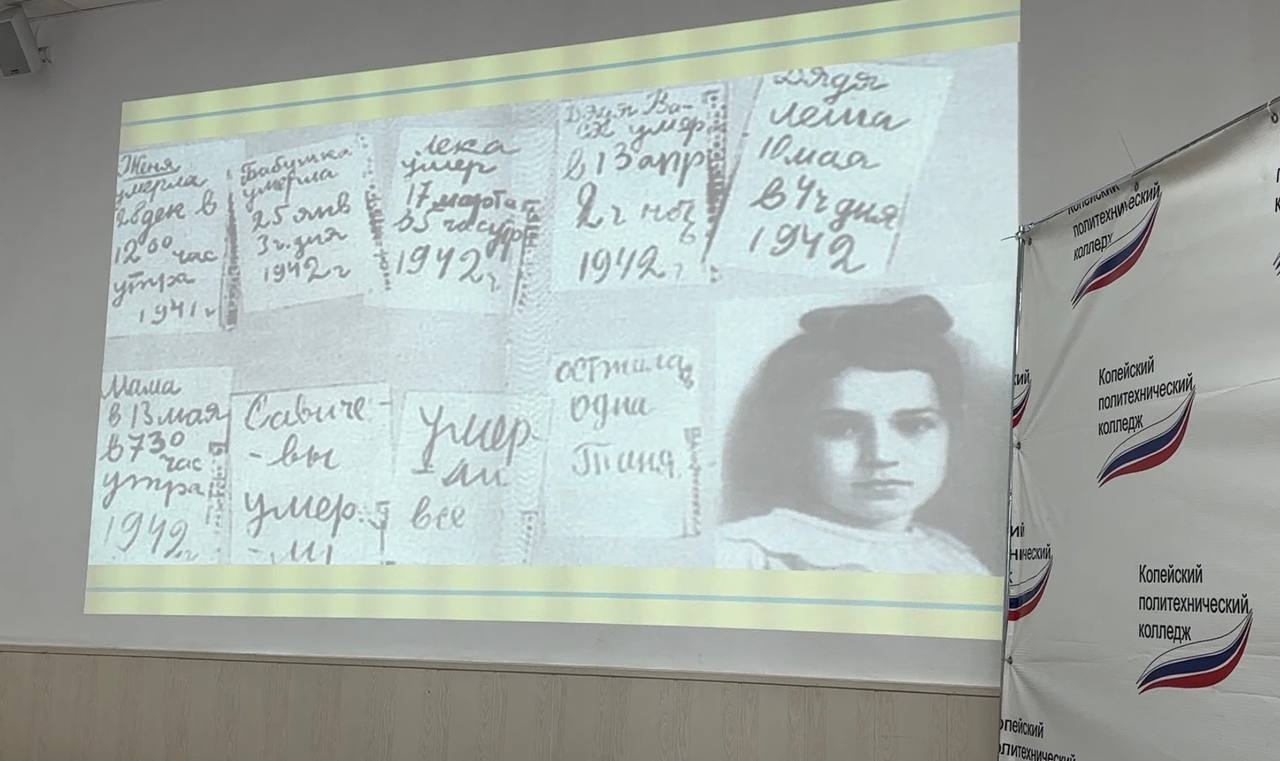 Женя
умерла
28 дек в
12⁰⁰ час
утра
1941 г
Бабушка
умерла
25 янв
3 ч. дня
1942 г
Лека
умер
17 марта
в 5 час утр
1942 г.
Дядя Ва-
ся умер
в 13 апр
2 ч ноч
1942 г
Дядя
Леша
10 мая
в 4 ч дня
1942
Мама
в 13 мая
в 7 30
час
утра
1942 г
Савиче-
-вы
умер-
-ли
Умер-
-ли
все
осталась
одна
Таня
Копейский
политехнический
колледж
Копейский
политехнический
колледж
Копейский
политехнический
колледж
Копейский
политехнический